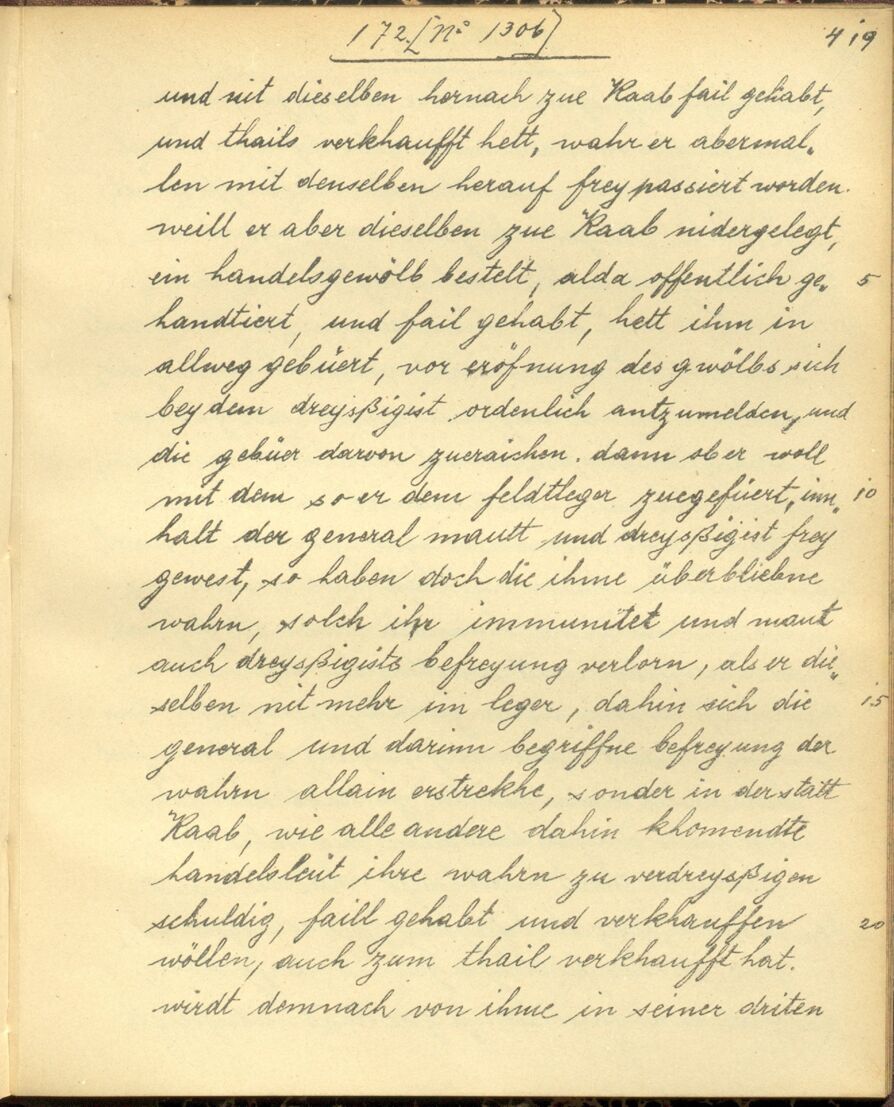 172. [No 1306]
419
und nit dieselben hernach zue Raab fail gehabt,
und thails verkhaufft hett, wahr er abermal„
len mit denselben herauf frey passiert worden.
weill er aber dieselben zue Raab nidergelegt,
ein handelsgewölb bestelt, alda offentlich ge„ 5
handtiert, und fail gehabt, hett ihm in
allweg gebüert, vor eröfnung des gwölbs sich
bey dem dreysßigist ordenlich antzumelden, und
die gebüer darvon zueraichen. dann ob er woll
mit dem so er dem feldtleger zuegefüert, inn„ 10
halt der general mautt und dreysßigist frey
gewest, so haben doch die ihme überbliebne
wahrn, solch ihr immunitet und maut
auch dreysßigists befreyung verlorn, als er die„
selben nit mehr im leger, dahin sich die 15
general und darinn begriffne befreyung der
wahrn allain erstrekhe, sonder in der statt
Raab, wie alle andere dahin khomendte
handelsleüt ihre wahrn zu verdreysßigen
schuldig, faill gehabt und verkhauffen 20
wöllen, auch zum thail verkhaufft hat.
wirdt demnach von ihme in seiner driten